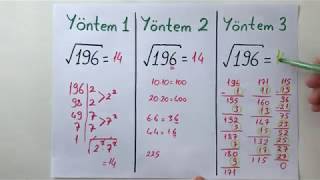 Yöntem 1
√196 = 14
196 | 2
98 | 2 > 2²
49 | 7
7 | 7 > 7²
1
√2² 7²
= 14
Yöntem 2
√196 = 14
10·10=100
20·20=400
6.6=36
4.4=16
225
Yöntem 3
√196 =
196 171 115
1 11 19
195 160 96
3 13 21
192 147 75
5 15 23
187 132 52
7 17 25
180 115 27
9 27
171 0